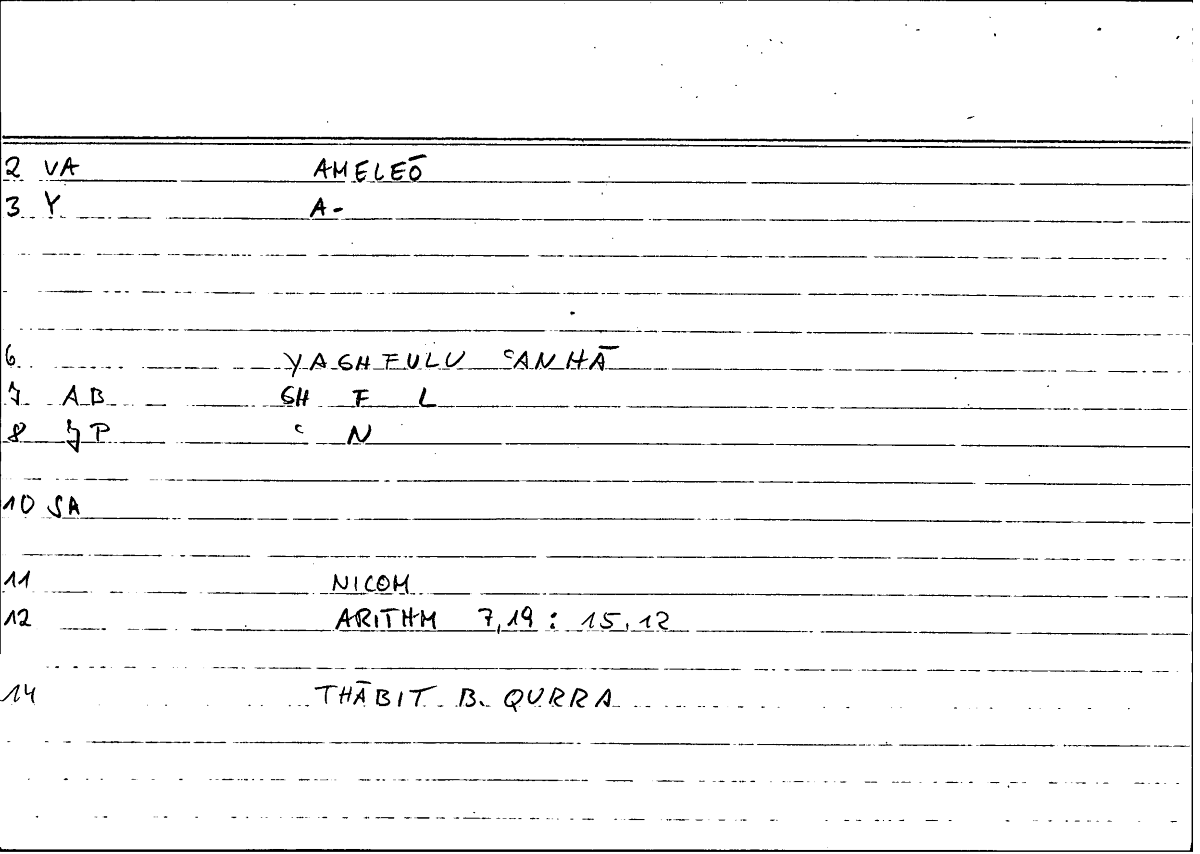 2 VA AMELEŌ
3 Y A-
6 YAGHFULU ᶜANHĀ
7 AB GH F L
8 JP ᶜ N
10 SA
11 NICOM
12 ARITHM 7,19 : 15,12
14 THĀBIT B. QURRA